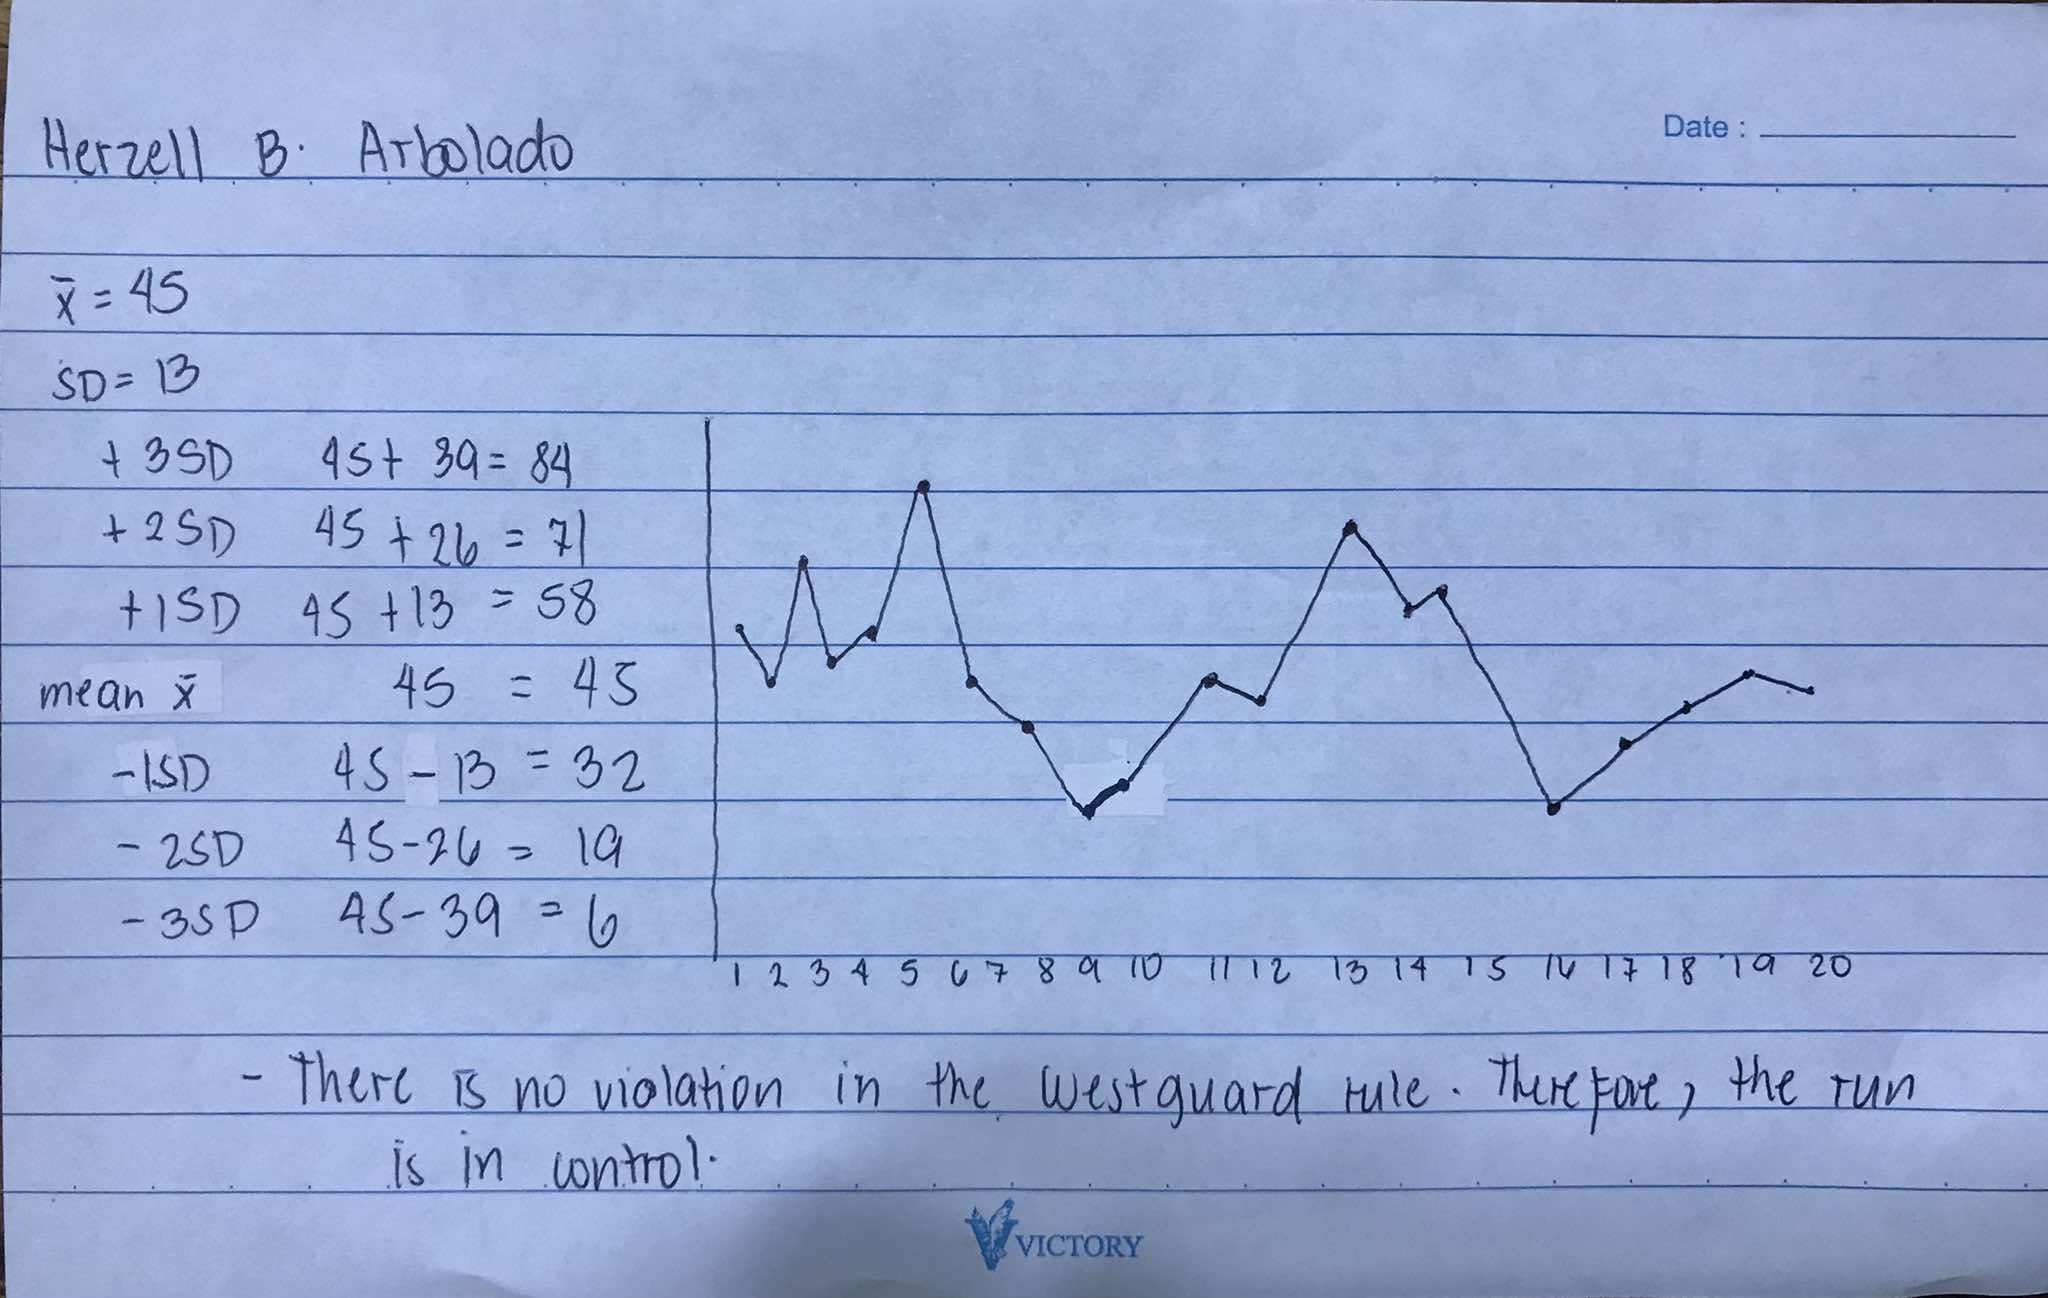 Herzell B. Arbolado
Date :
x̄ = 45
SD = 13
+ 3SD 45 + 39 = 84
+ 2SD 45 + 26 = 71
+1SD 45 +13 = 58
mean x̄ 45 = 45
-1SD 45 - 13 = 32
- 2SD 45-26 = 19
- 3SD 45-39 = 6
1 2 3 4 5 6 7 8 9 10 11 12 13 14 15 16 17 18 19 20
- There is no violation in the Westguard rule. Therefore, the run
is in control.
VICTORY